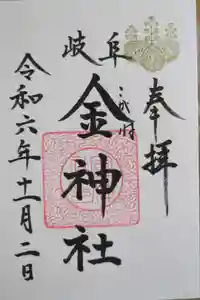 奉拝
岐阜
金神社
令和六年十一月二日